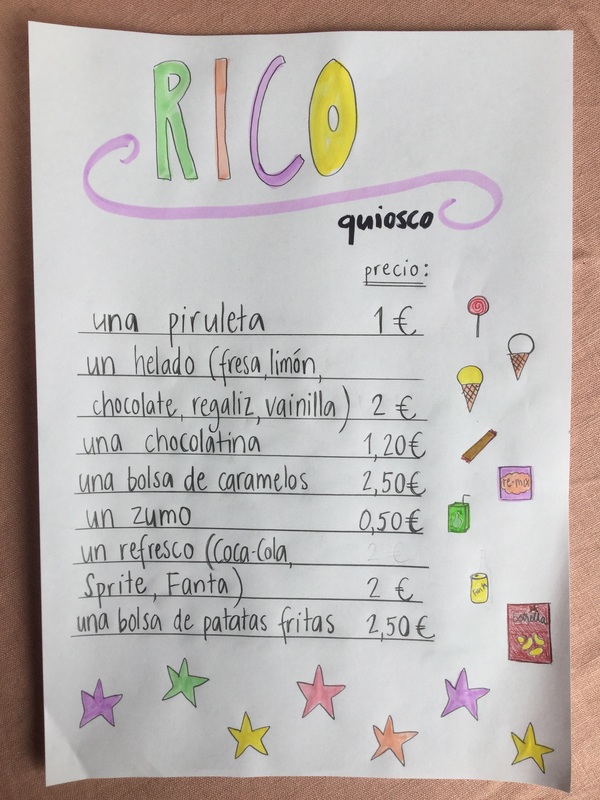 RICO
quiosco
precio:
una piruleta 1 €
un helado (fresa, limón,
chocolate, regaliz, vainilla) 2 €
una chocolatina 1,20€
una bolsa de caramelos 2,50€
re-mix
un zumo 0,50€
un refresco (Coca-Cola, 2 €
Sprite, Fanta) 2 €
una bolsa de patatas fritas 2,50€